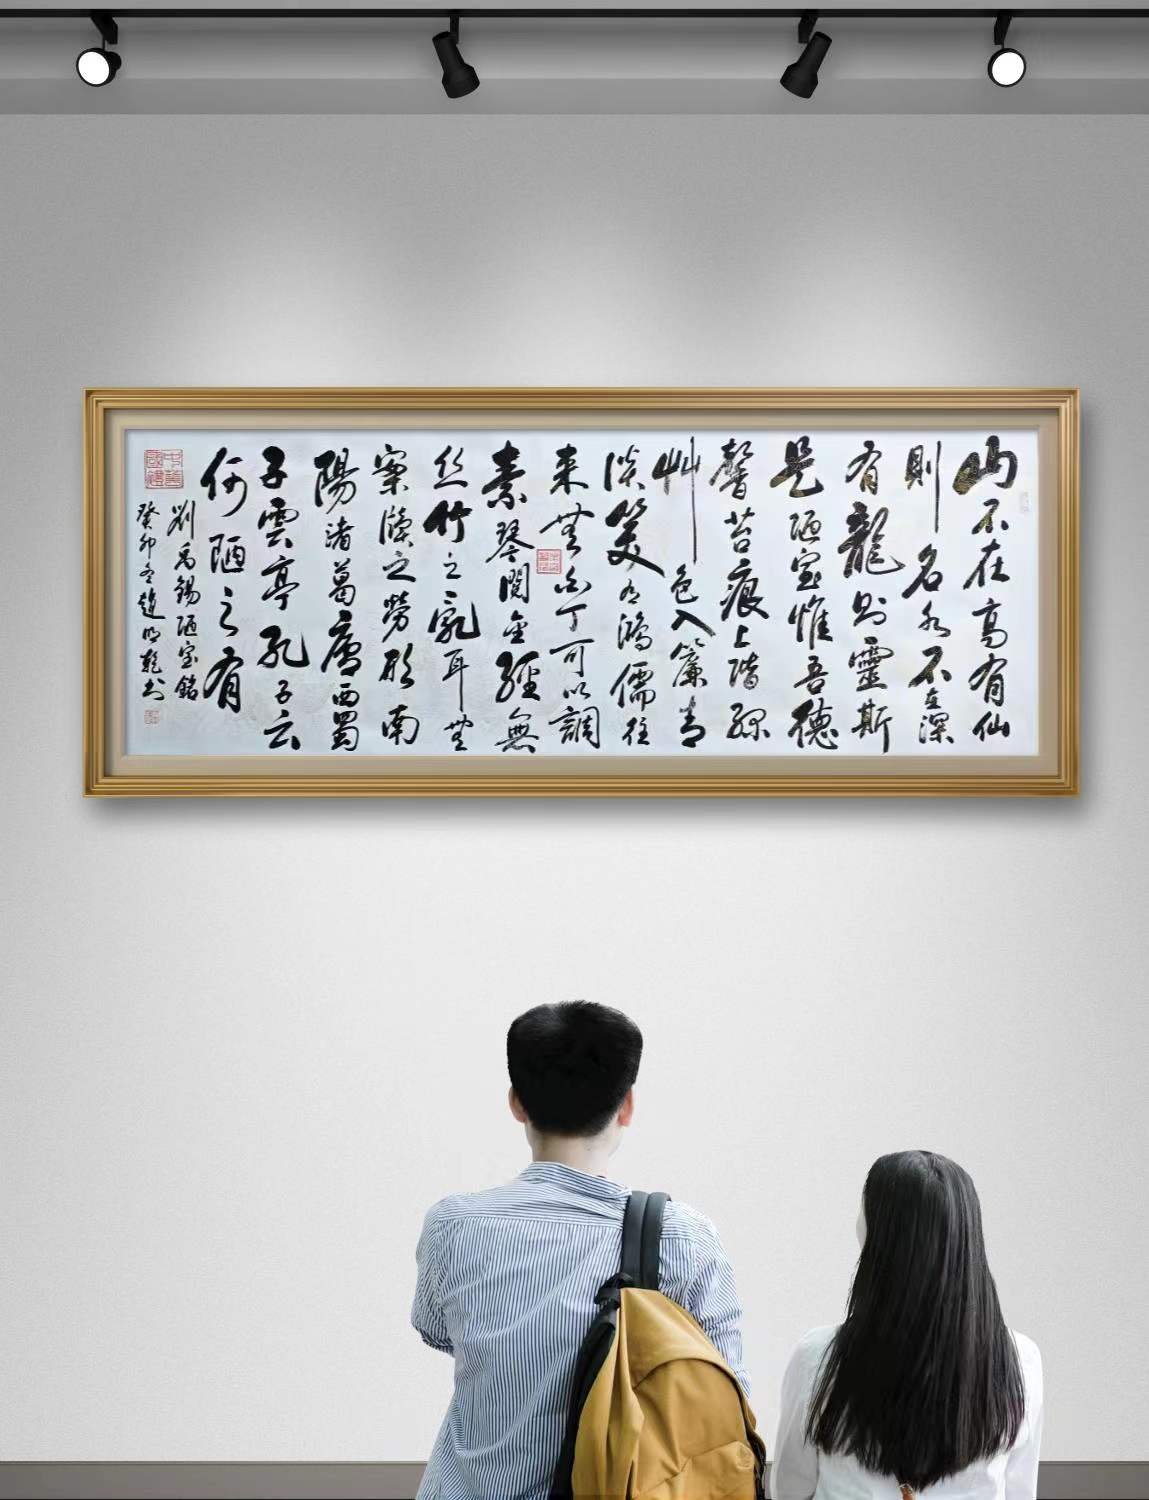 山不在高有仙
則名水不在深
有龍則靈斯
是陋室惟吾德
馨苔痕上階綠
艸色入簾青
淡笑有鴻儒往
来無白丁可以調
素琴閱金經無
丝竹之亂耳無
案牘之勞形南
陽諸葛廬西蜀
子雲亭孔子云
何陋之有
劉禹錫陋室銘
癸卯冬趙明乾书